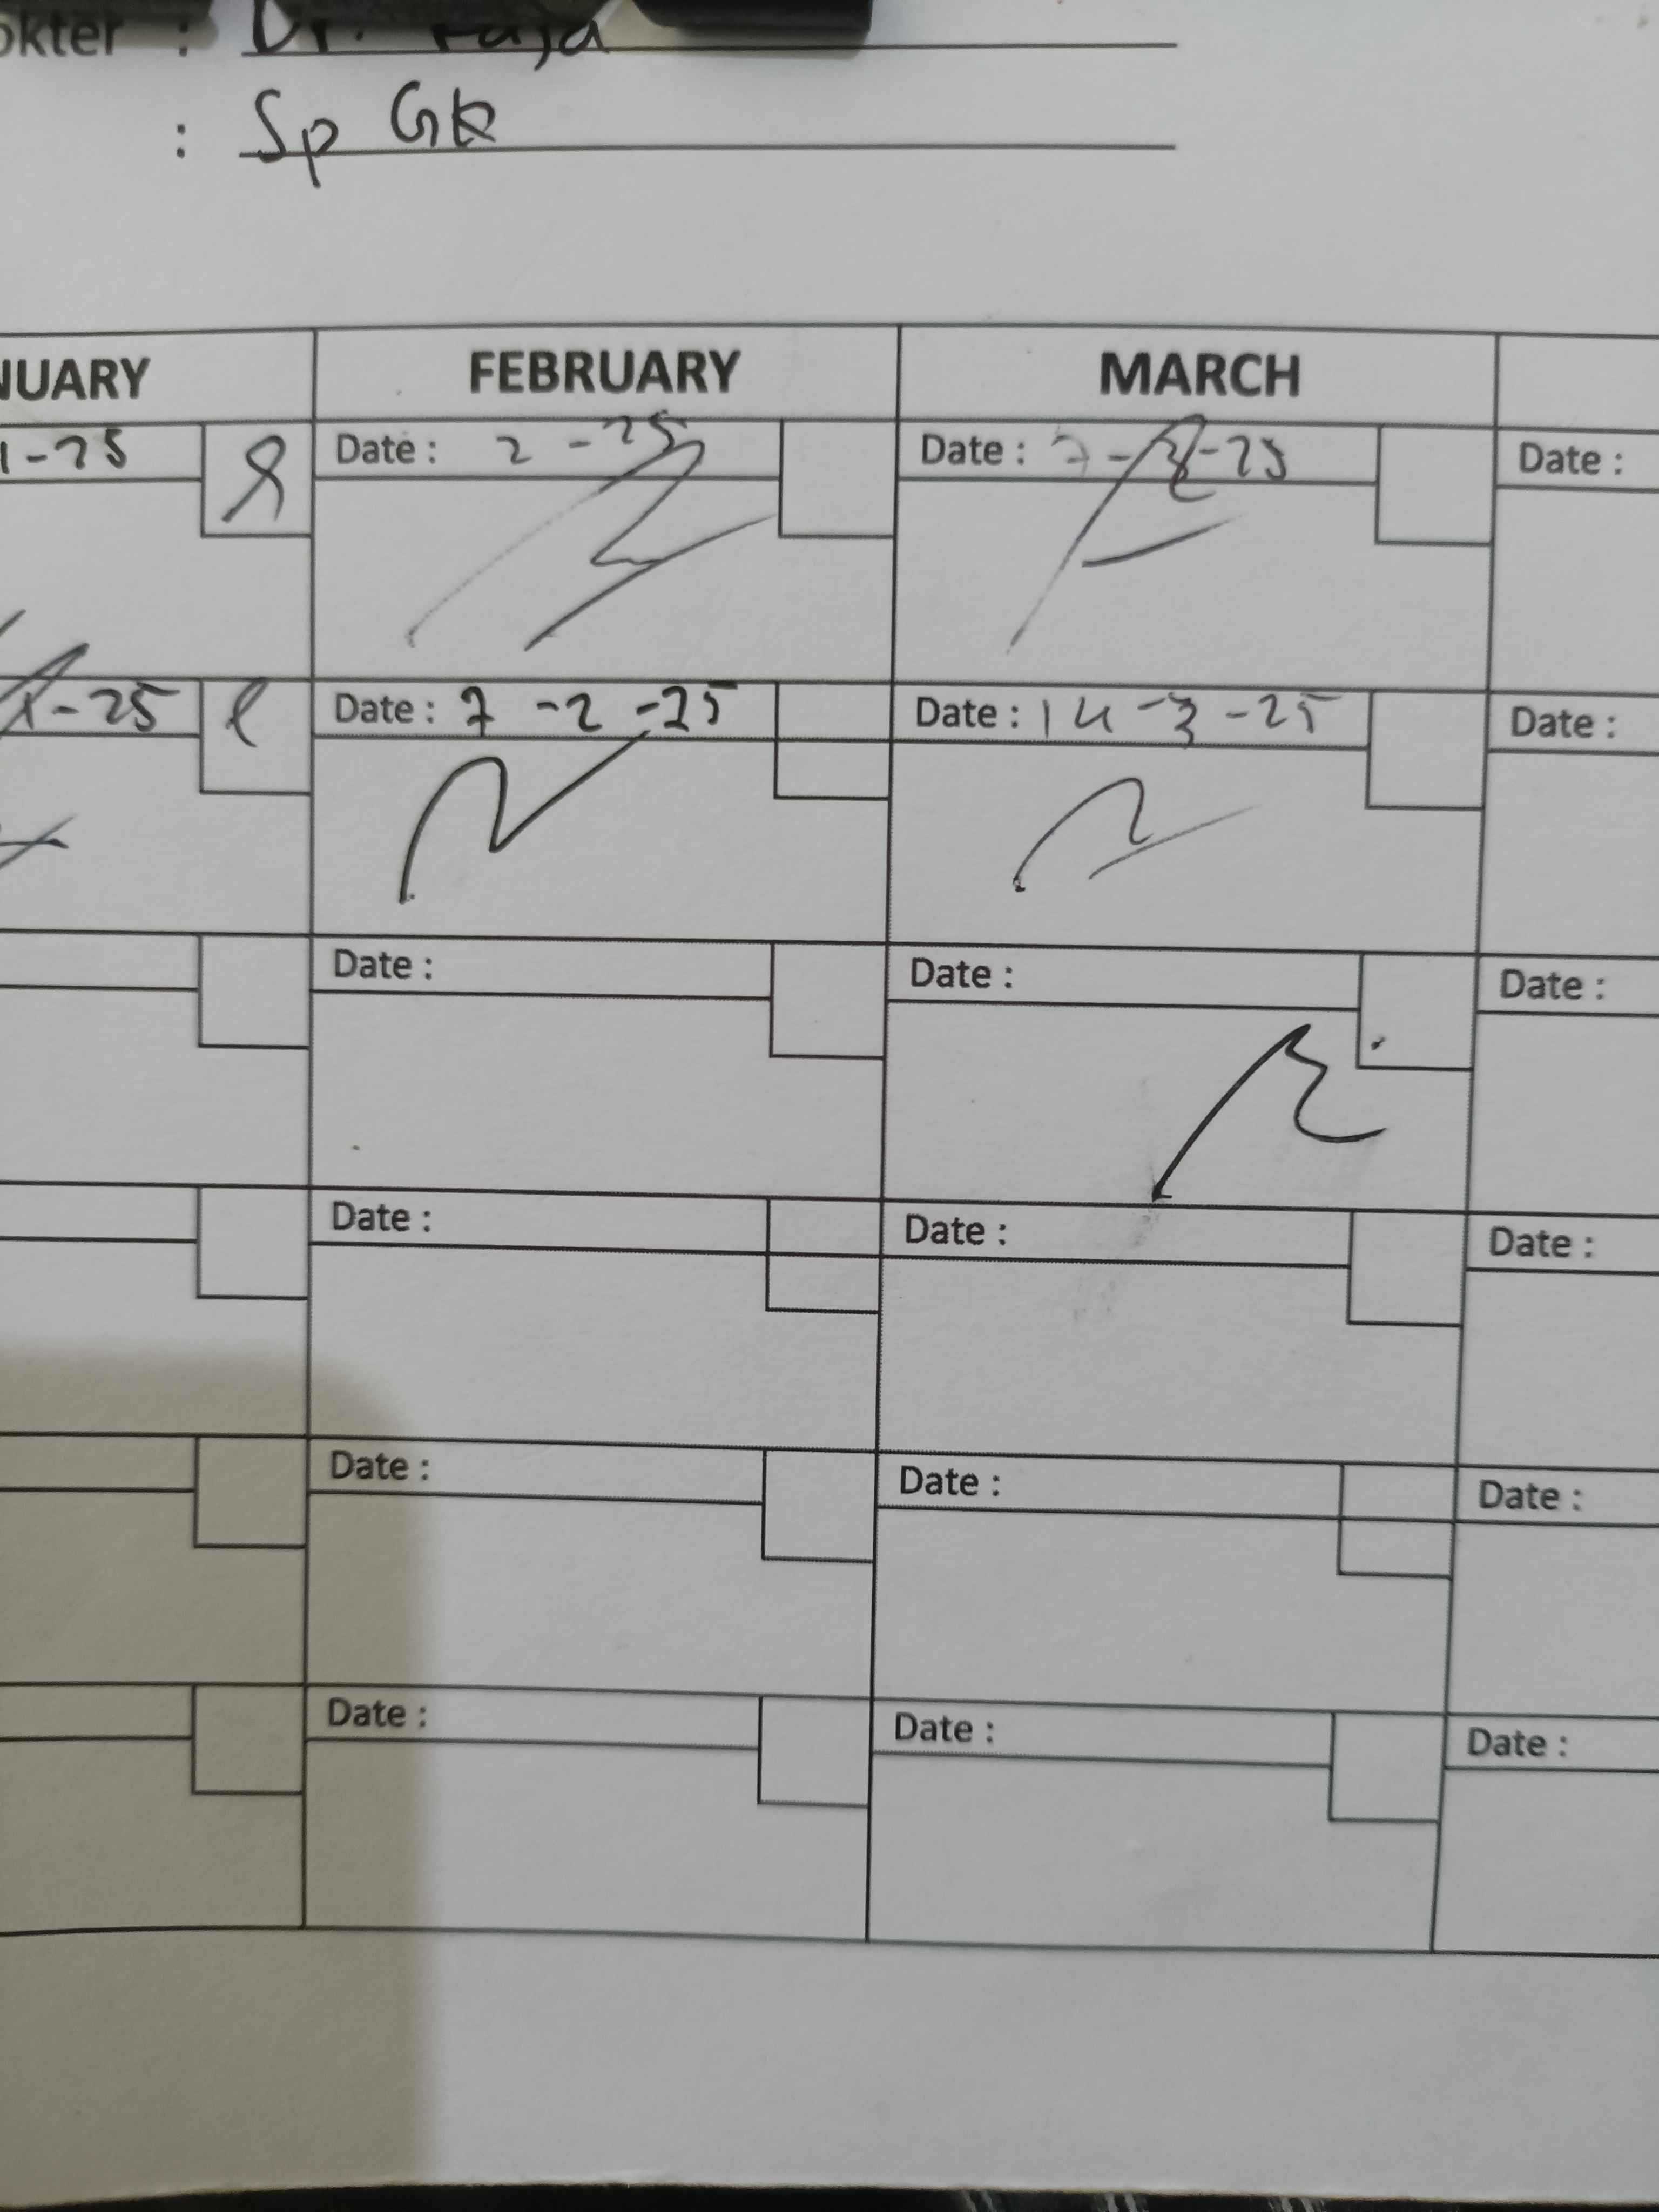 okter : Dr.
: Sp GK
NUARY FEBRUARY MARCH
1-25 Date : 2 -25 Date : 7-3-25 Date :
1-25 Date : 7 -2 -25 Date : 14-3-25 Date :
Date : Date : Date :
Date : Date : Date :
Date : Date : Date :
Date : Date : Date :